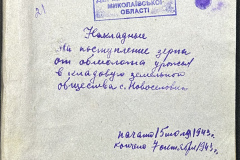 21
МИКОЛАЇВСЬКОЇ
ОБЛАСТІ
Накладные
На поступление зерна
от обмолота урожая
в кладовую земельного
общества с. Новоселовки
начато 15 июля 1943 г.
кончено 7 октября 1943 г.